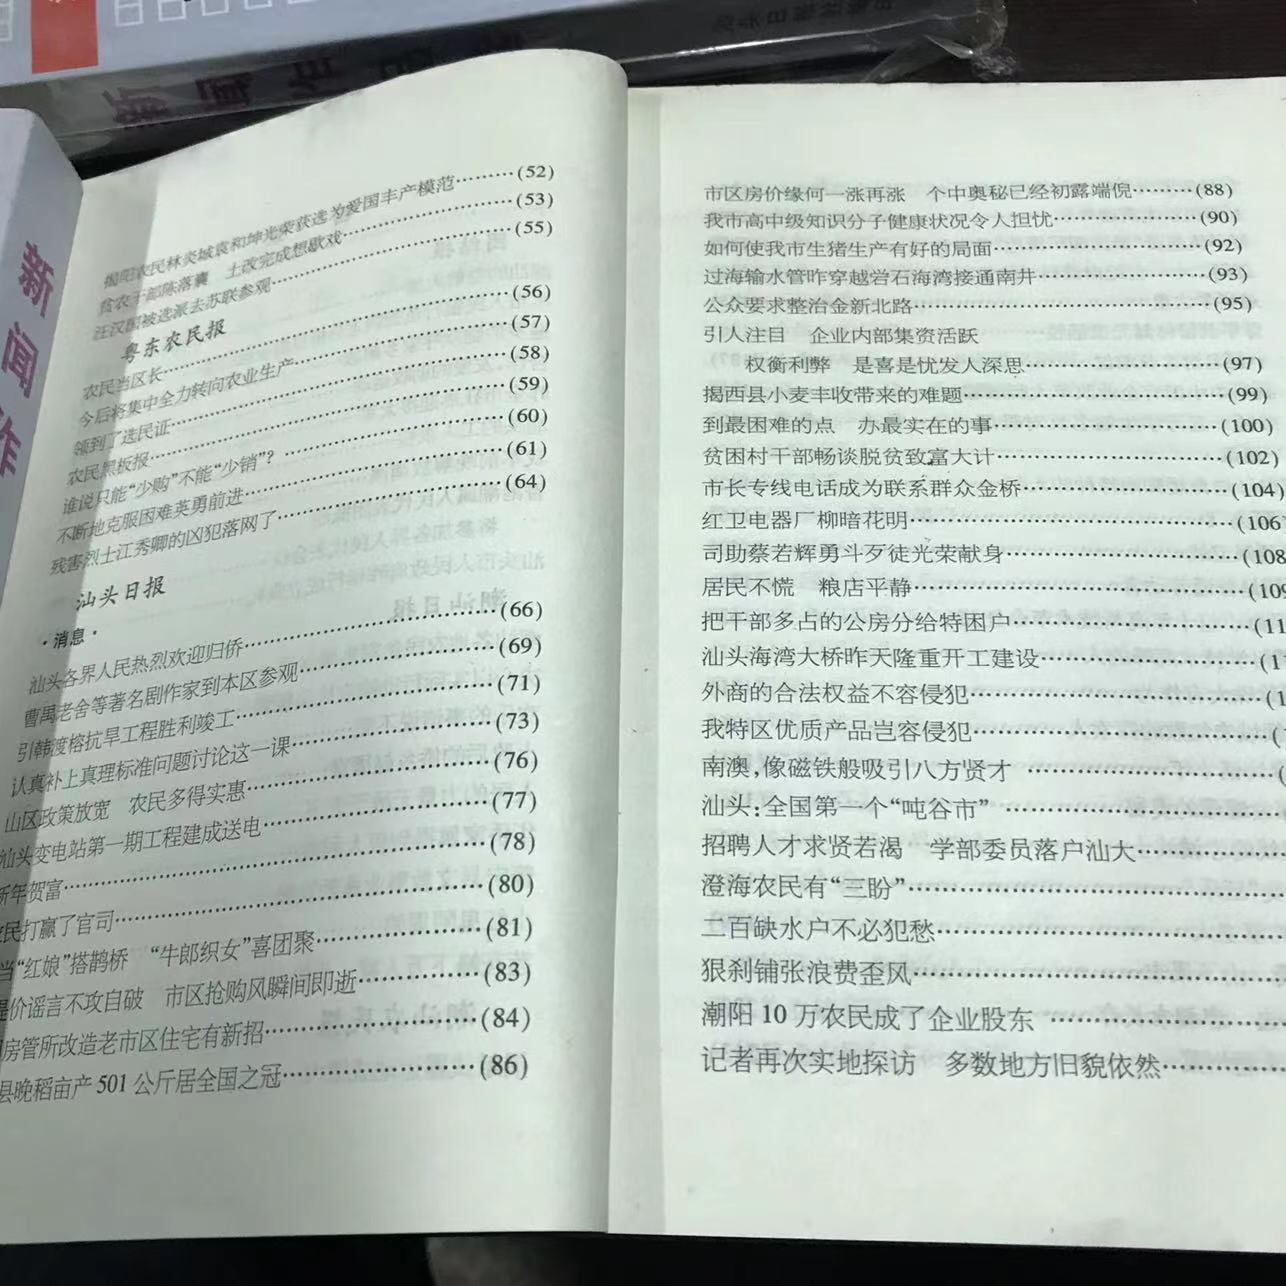 新闻作
揭阳农民林炎城袁和坤光荣获选为爱国丰产模范………(52)
贫农干部陈落囊　土改完成想歇戏………(53)
汪汉国被选派去苏联参观………(55)
粤东农民报
农民当区长………(56)
今后将集中全力转向农业生产………(57)
领到了选民证………(58)
农民黑板报………(59)
谁说只能“少购”不能“少销”？………(60)
不断地克服困难英勇前进………(61)
残害烈士江秀卿的凶犯落网了………(64)
汕头日报
·消息·
汕头各界人民热烈欢迎归侨………(66)
曹禺老舍等著名剧作家到本区参观………(69)
引韩渡榕抗旱工程胜利竣工………(71)
认真补上真理标准问题讨论这一课………(73)
山区政策放宽　农民多得实惠………(76)
汕头变电站第一期工程建成送电………(77)
新年贺富………(78)
民打赢了官司………(80)
当“红娘”搭鹊桥　“牛郎织女”喜团聚………(81)
价谣言不攻自破　市区抢购风瞬间即逝………(83)
房管所改造老市区住宅有新招………(84)
县晚稻亩产501公斤居全国之冠………(86)
市区房价缘何一涨再涨　个中奥秘已经初露端倪………(88)
我市高中级知识分子健康状况令人担忧………(90)
如何使我市生猪生产有好的局面………(92)
过海输水管昨穿越岩石海湾接通南井………(93)
公众要求整治金新北路………(95)
引人注目　企业内部集资活跃
权衡利弊　是喜是忧发人深思………(97)
揭西县小麦丰收带来的难题………(99)
到最困难的点　办最实在的事………(100)
贫困村干部畅谈脱贫致富大计………(102)
市长专线电话成为联系群众金桥………(104)
红卫电器厂柳暗花明………(106
司助蔡若辉勇斗歹徒光荣献身………(108
居民不慌　粮店平静………(109
把干部多占的公房分给特困户………(11
汕头海湾大桥昨天隆重开工建设………(1
外商的合法权益不容侵犯………(1
我特区优质产品岂容侵犯………(
南澳,像磁铁般吸引八方贤才………(
汕头:全国第一个“吨谷市”………
招聘人才求贤若渴　学部委员落户汕大………
澄海农民有“三盼”………
二百缺水户不必犯愁………
狠刹铺张浪费歪风………
潮阳10万农民成了企业股东………
记者再次实地探访　多数地方旧貌依然………